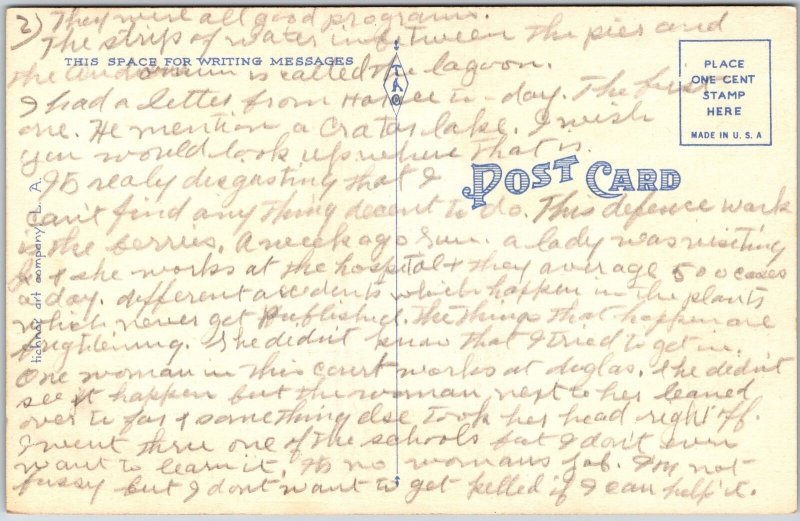 2) They were all good programs.
The strip of water in between the pier and
THIS SPACE FOR WRITING MESSAGES
the is called the lagoon.
I had a letter from Horace to-day. The best
one. He mention a Crator lake. I wish
you would look up where that is.
Its realy disgasting that I
can't find any thing decent to do. This defence work
is the berries. A week ago Sun. a lady was visiting
& she works at the hospital & they average 500 cases
a day. different accedents which happen in the plants
which never get Published. The things that happen are
frightening. She didn't know that I tried to get in.
One woman in this court works at duglas. She didn't
see it happen but the woman next to her leaned
over to far & something else took her head right off.
I went thru one of the schools but I don't even
want to learn it. Its no womans job. I'm not
fussy but I dont want to get killed if I can help it.
PLACE
ONE CENT
STAMP
HERE
MADE IN U.S.A
POST CARD
TAC
tichnor art company, L. A.